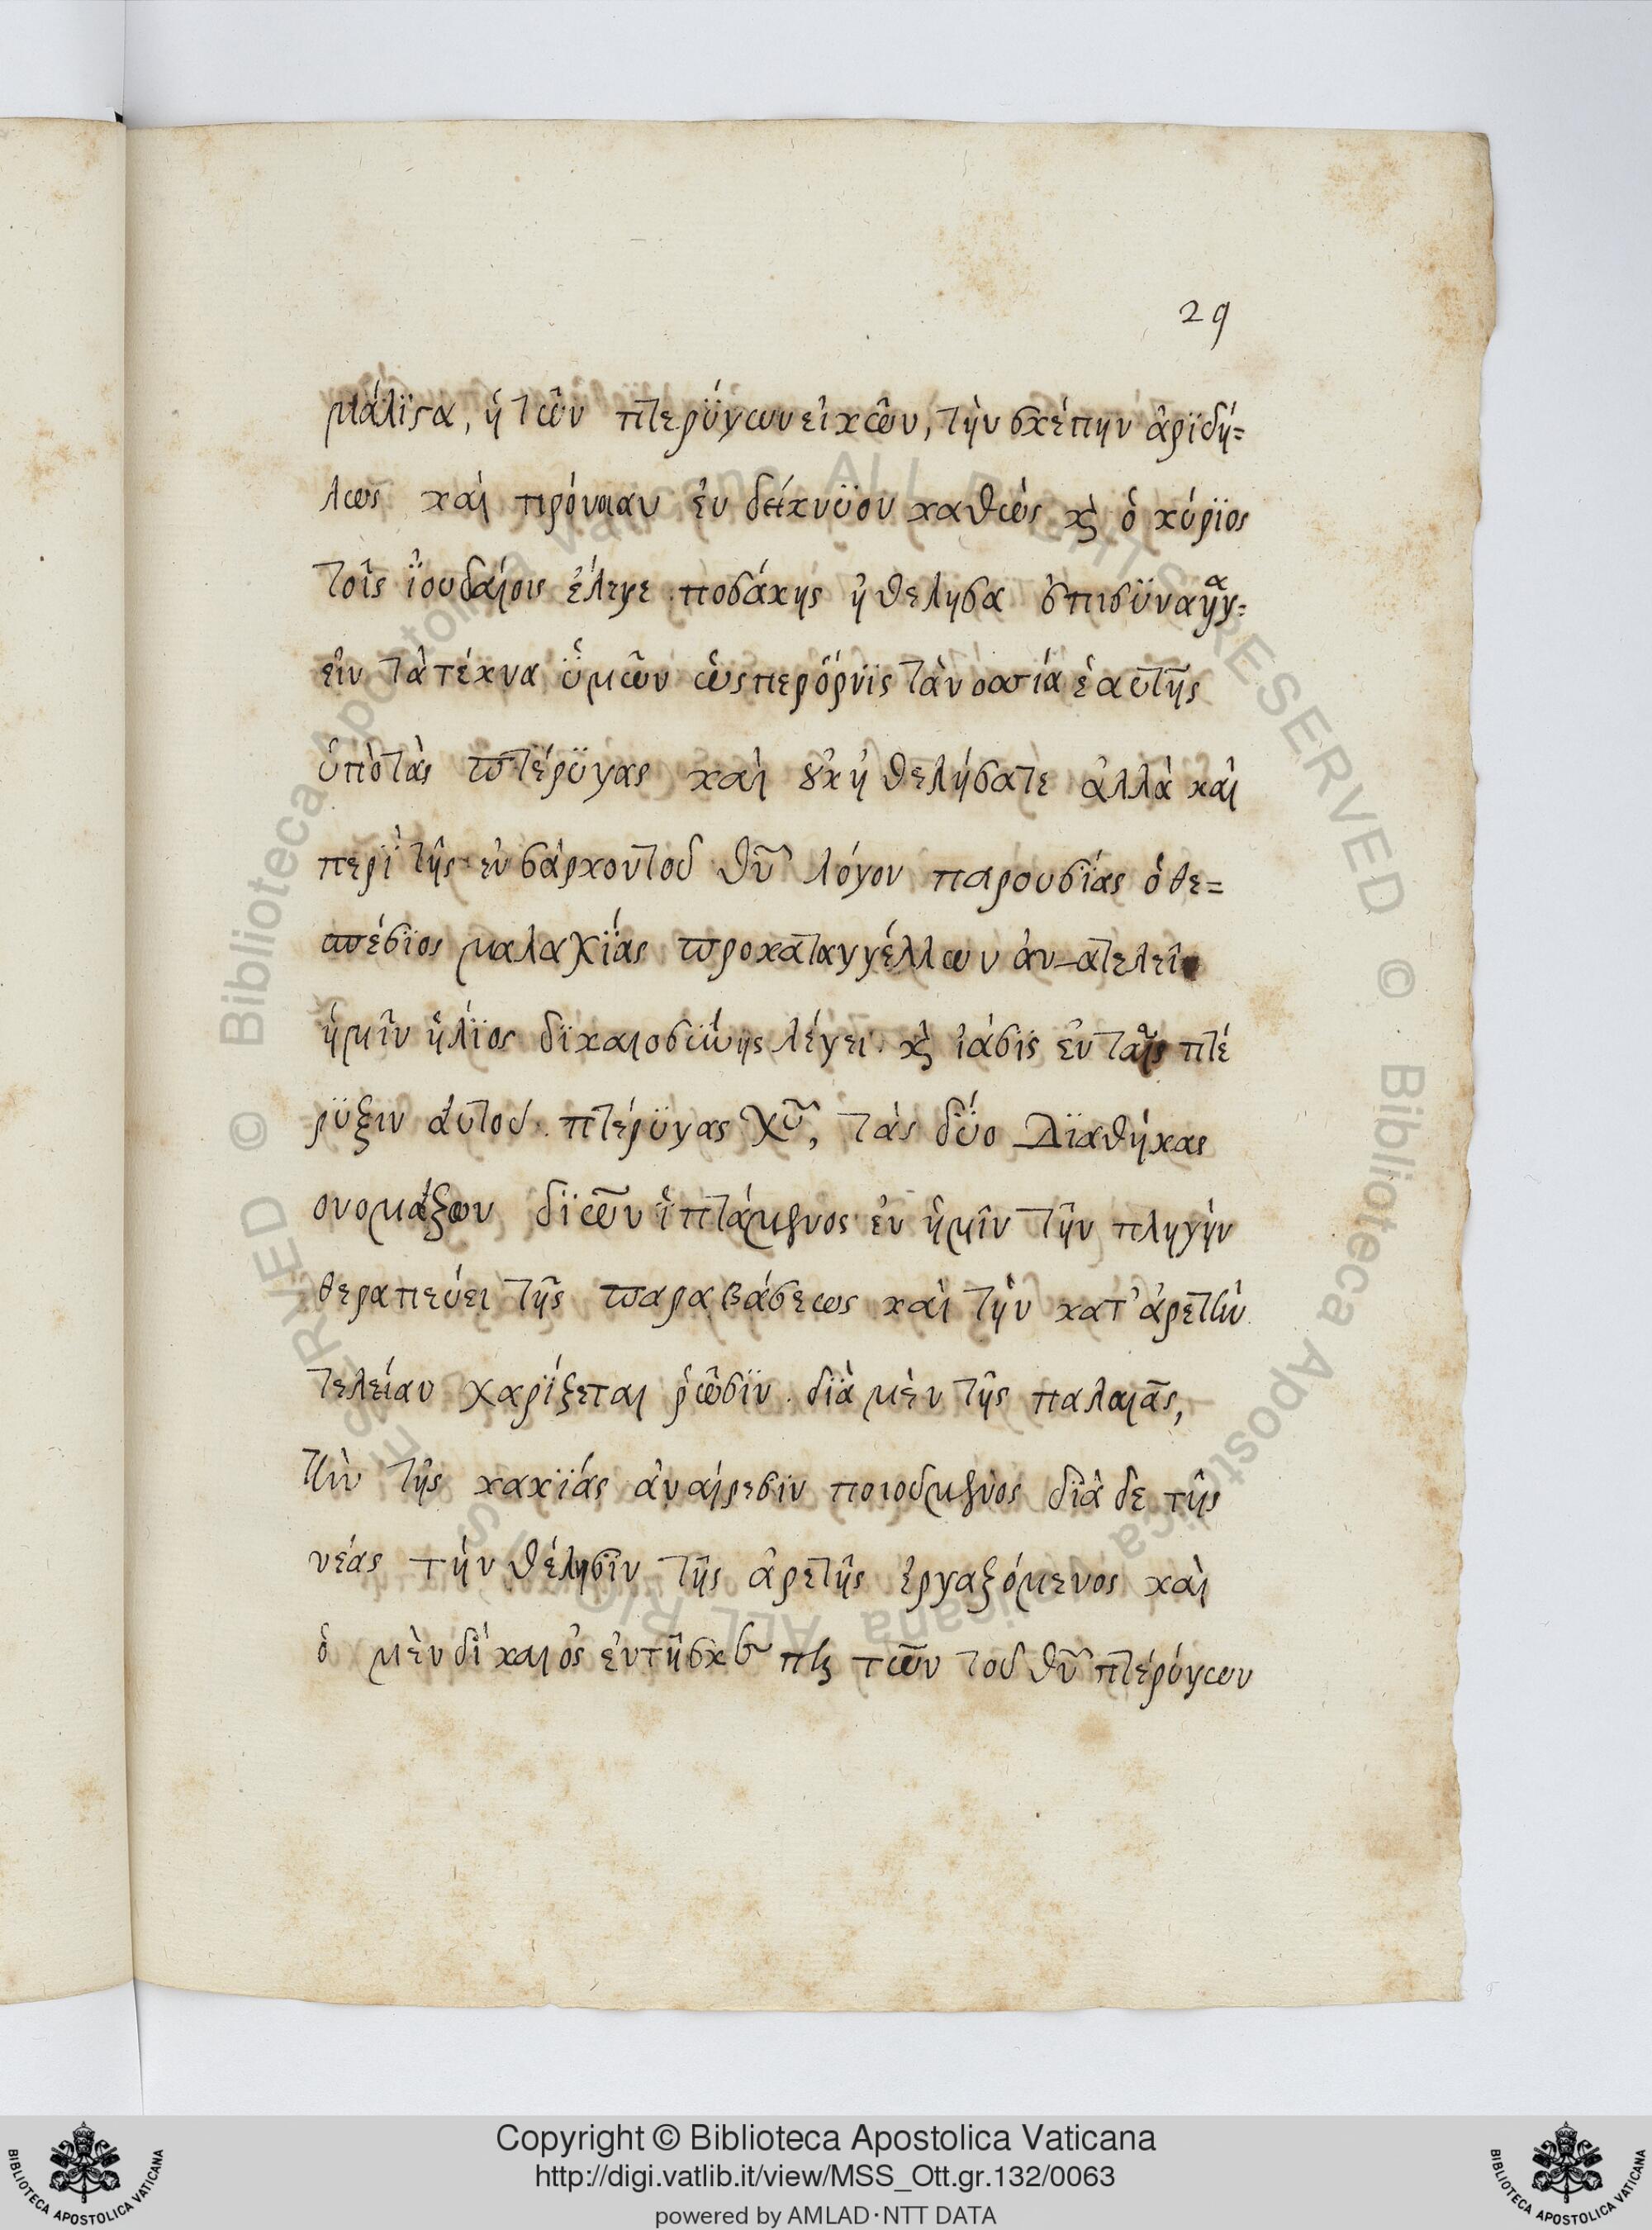 29
μάλϊςα, ἡ τῶν πτερΰγων εἰκῶν, τὴν σκέπην ἀρϊδή=
λως καὶ πρόνοιαν ἐν δείκνϋον καθὼς κὶ ὁ κύρϊος
τοῖς ἰουδαίοις ἔλεγε ποσάκης ἠ θελησα ἐπισϋναγαγ=
εῖν τὰ τέκνα ὑμῶν ὥςπερ ὄρνϊς τὰ νοσσία ἑαυτῆς
ὑπὸ τὰς πτέρϋγας καὶ ȣ̓κ ἠ θελήσατε ἀλλὰ καὶ
περὶ τῆς ἐν σάρκον τοῦ θῦ λόγον παρουσΐας ὁ θε=
σπέσϊος μαλαχΐας προκαταγγέλλων ἀν-ατελεῖ
ἡμῖν ἥλϊος δϊκαιοσύνης λέγει. κὶ ἰάσϊς ἐν ταῖς πτέ
ρϋξιν αὐτοῦ. πτέρϋγας χῦ, τάς δΰο Δϊαθήκας
ονομάζων δϊ ῶν ἱπτάμενος ἐν ἡμῖν τὴν πληγὴν
θεραπεύει τῆς παραβάσεως καὶ τὴν κατ' ἀρετὴν
τελείαν χαρΐζεται ῥῶσϊν. διὰ μὲν τῆς παλαιᾶς,
τὴν τῆς κακϊάς ἀναίρεσϊν ποιούμενος διὰ δε τῆς
νέας τήν θέλησϊν τῆς ἀρετῆς ἐργαζόμενος καὶ
ὁ μὲν δίκαιὀς ἐν τῇ σκέπῃ τῶν τοῦ θῦ πτέρύγων
Copyright © Biblioteca Apostolica Vaticana
http://digi.vatlib.it/view/MSS_Ott.gr.132/0063
powered by AMLAD·NTT DATA
BIBLIOTECA APOSTOLICA VATICANA
BIBLIOTECA APOSTOLICA VATICANA